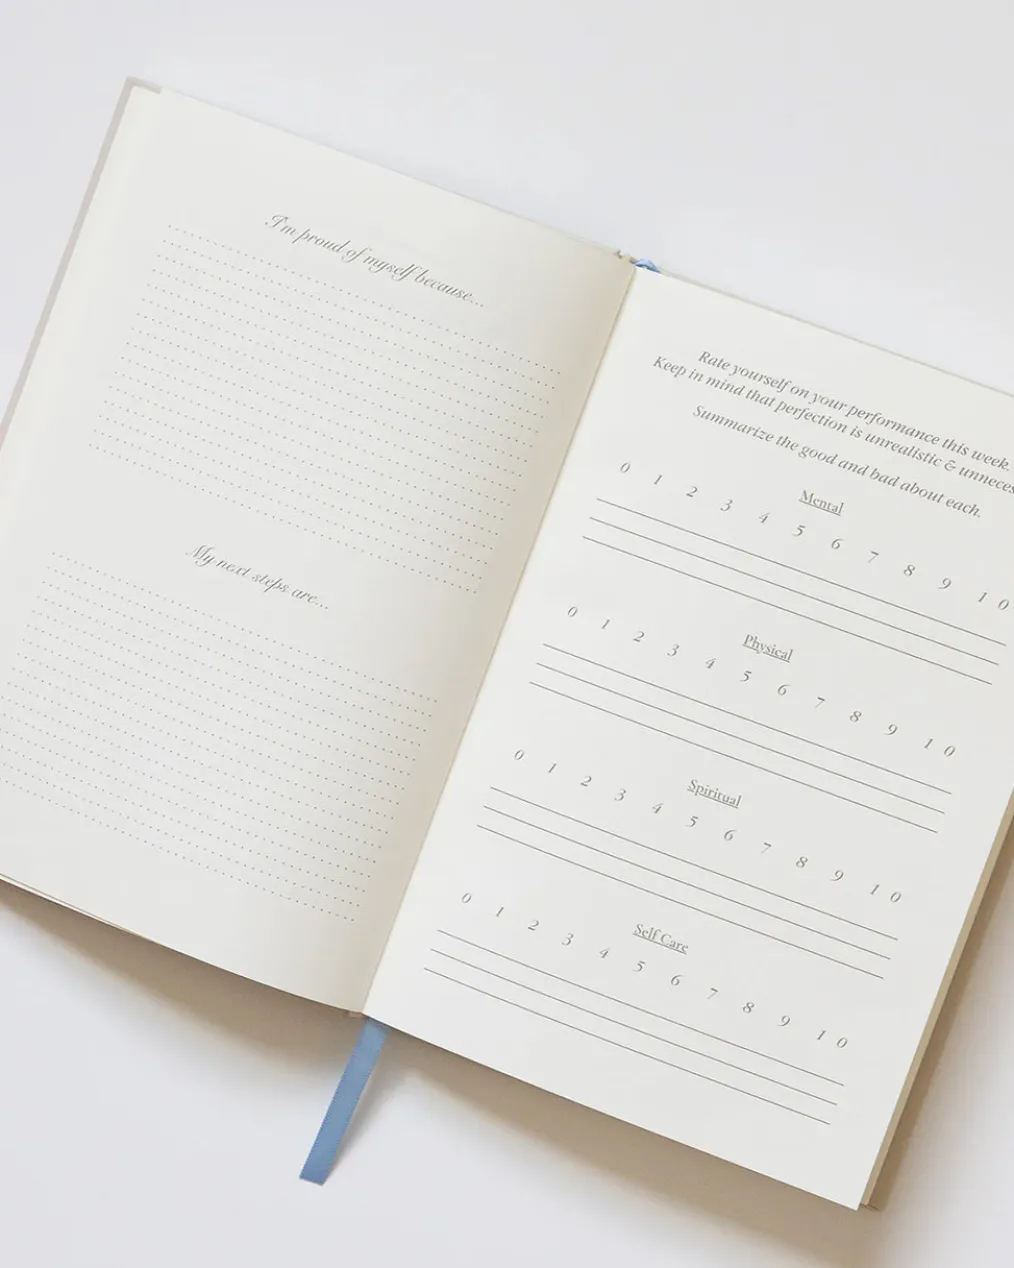 I'm proud of myself because...
My next steps are...
Rate yourself on your performance this week.
Keep in mind that perfection is unrealistic &
Summarize the good and bad about each.
Mental
0 1 2 3 4 5 6 7 8 9 10
Physical
0 1 2 3 4 5 6 7 8 9 10
Spiritual
0 1 2 3 4 5 6 7 8 9 10
Self Care
0 1 2 3 4 5 6 7 8 9 10